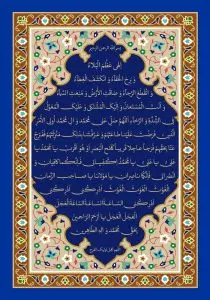 بسم الله الرحمن الرحیم
إلهی عَظُمَ الْبَلاءُ
وَ بَرِحَ الْخَفاءُ وَ انْکَشَفَ الْغِطاءُ
وَ انْقَطَعَ الرَّجاءُ وَ ضاقَتِ الْأَرْضُ وَ مُنِعَتِ السَّماءُ
وَ أَنْتَ الْمُسْتَعانُ وَ إِلَیْکَ الْمُشْتَکی وَ عَلَیْکَ الْمُعَوَّلُ
فِی الشِّدَّةِ وَ الرَّخاءِ اللّهُمَّ صَلِّ عَلی مُحَمَّدٍ وَ آلِ مُحَمَّدٍ أُولِی الْأَمْرِ
الَّذینَ فَرَضْتَ عَلَیْنا طاعَتَهُمْ وَ عَرَّفْتَنا بِذلِکَ مَنْزِلَتَهُمْ فَفَرِّجْ
عَنّا بِحَقِّهِمْ فَرَجاً عاجِلاً قَریباً کَلَمْحِ الْبَصَرِ أَوْ هُوَ أَقْرَبُ یا مُحَمَّدُ یا
عَلِیُّ یا عَلِیُّ یا مُحَمَّدُ اکْفِیانی فَإِنَّکُما کافِیانِ وَ
انْصُرانی فَإِنَّکُما ناصِرانِ یا مَوْلانا یا صاحِبَ الزَّمانِ
الْغَوْثَ الْغَوْثَ الْغَوْثَ أَدْرِکْنی أَدْرِکْنی
أَدْرِکْنی السّاعَةَ السّاعَةَ السّاعَةَ الْعَجَلَ
الْعَجَلَ الْعَجَلَ یا أَرْحَمَ الرّاحِمینَ
بِحَقِّ مُحَمَّدٍ وَ آلِهِ الطّاهِرینَ
اللهم عجل لولیک الفرج